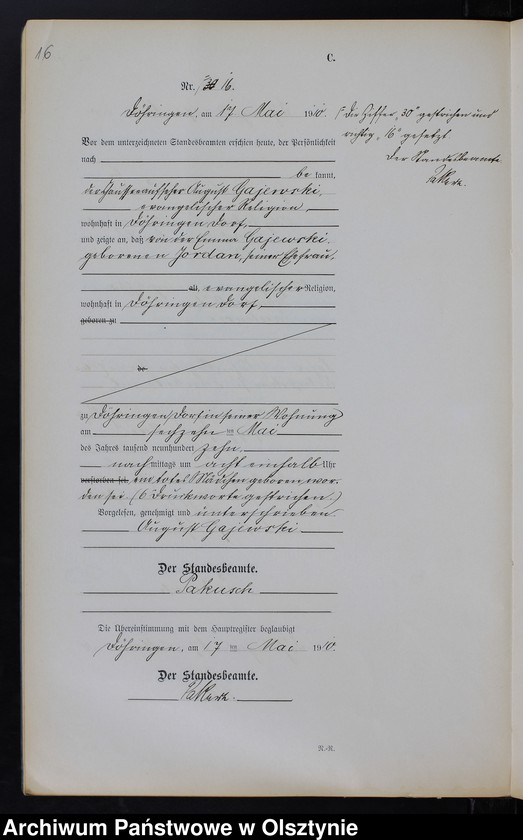 16
C.
Nr. 30 16.
Döhringen, am 17 Mai 1910.
Die Ziffer „30“ gestrichen und
richtig „16“ gesetzt
Der Standesbeamte
Vor dem unterzeichneten Standesbeamten erschien heute, der Persönlichkeit
nach
be kannt,
der Chausseeaufseher August Gajewski,
evangelischer Religion
wohnhaft in Döhringen Dorf,
und zeigte an, daß von der Emma Gajewski
geborenen Jordan, seiner Ehefrau,
alt, evangelischer Religion,
wohnhaft in Döhringen Dorf
geboren zu
de
zu Döhringen Dorf in seiner Wohnung
am sechzehn ten Mai
des Jahres tausend neunhundert zehn
nach mittags um acht einhalb Uhr
verstorben sei. ein totes Mädchen geboren wor-
den sei. (6 Druckworte gestrichen.)
Vorgelesen, genehmigt und unterschrieben
August Gajewski
Der Standesbeamte.
Pakusch
Die Übereinstimmung mit dem Hauptregister beglaubigt
Döhringen, am 17 ten Mai 1910.
Der Standesbeamte.
N.-R.
Archiwum Państwowe w Olsztynie